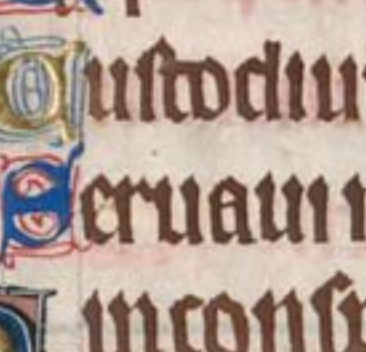 Cuſtodiui
Seruaui
inconſp